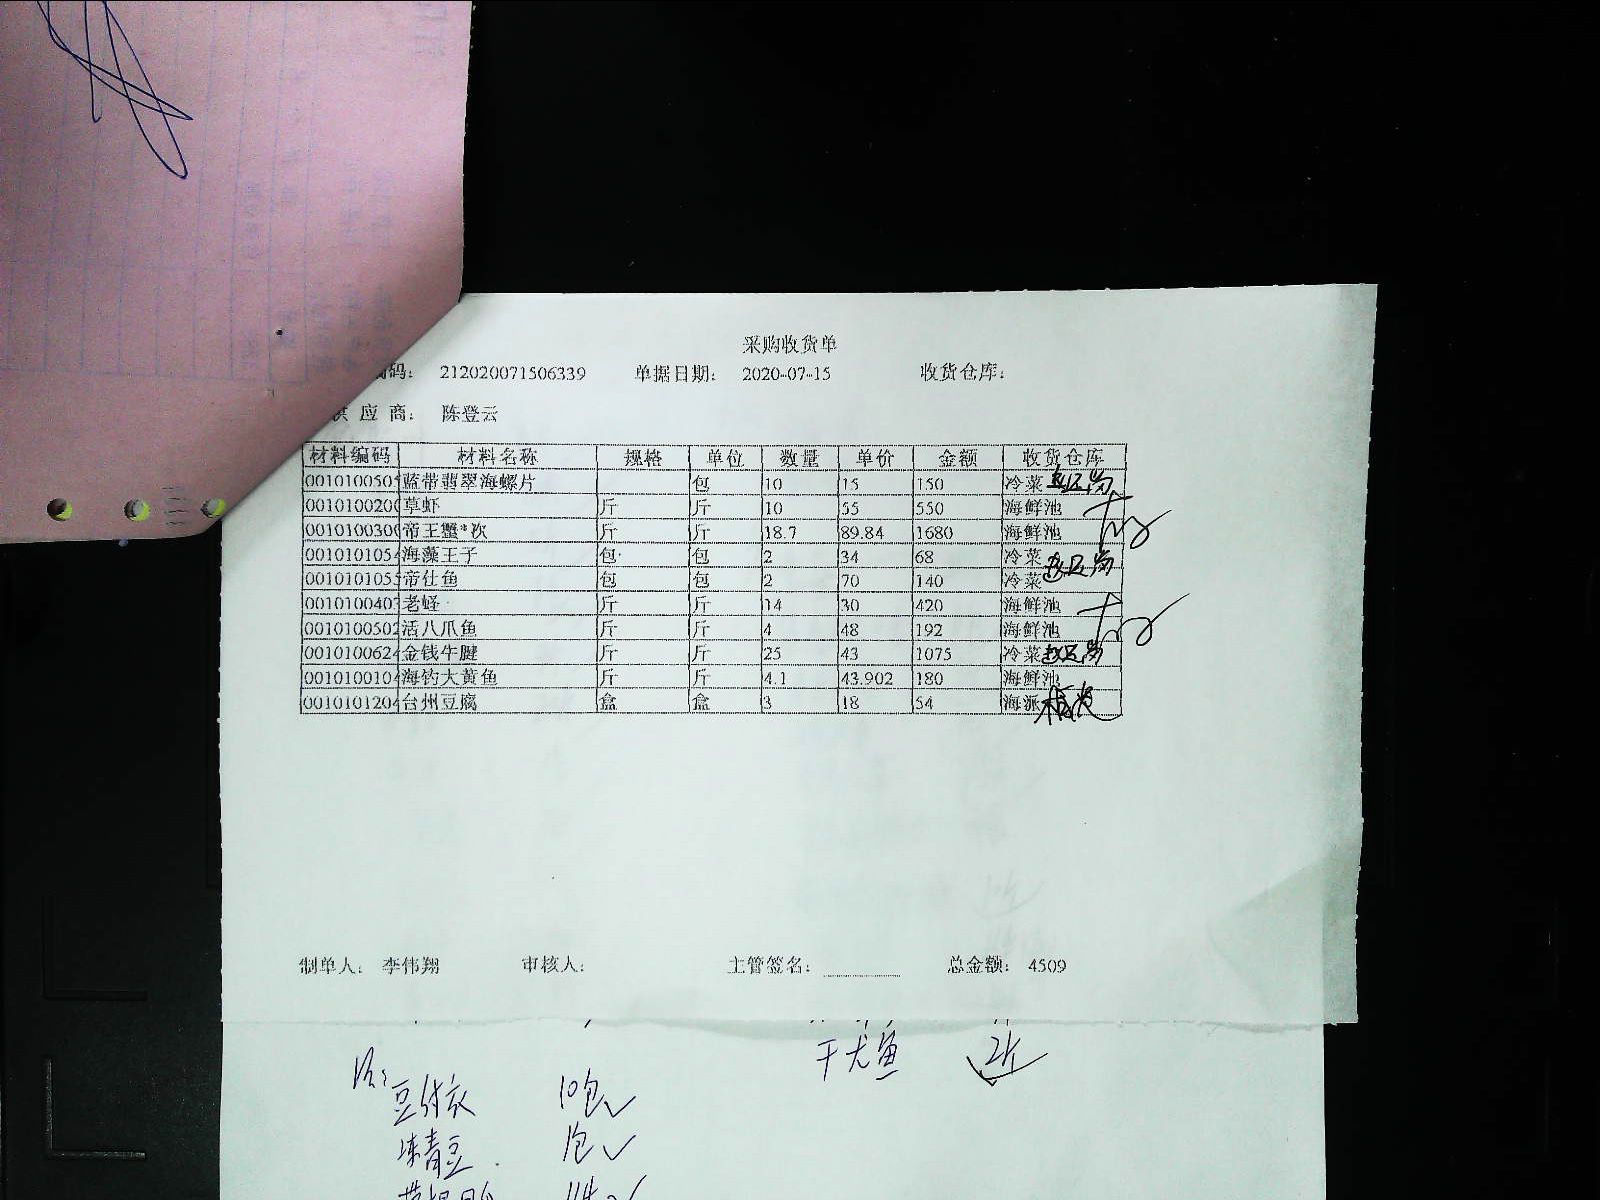 采购收货单
编码： 212020071506339 单据日期： 2020-07-15 收货仓库：
供 应 商： 陈登云
材料编码 材料名称 规格 单位 数量 单价 金额 收货仓库
0010100505 蓝带翡翠海螺片 包 10 15 150 冷菜
001010020 草虾 斤 斤 10 55 550 海鲜池
001010030 帝王蟹*次 斤 斤 18.7 89.84 1680 海鲜池
0010101054 海藻王子 包 包 2 34 68 冷菜
0010101055 帝仕鱼 包 包 2 70 140 冷菜
0010100403 老蛏 斤 斤 14 30 420 海鲜池
0010100502 活八爪鱼 斤 斤 4 48 192 海鲜池
0010100624 金钱牛腱 斤 斤 25 43 1075 冷菜
0010100104 海钓大黄鱼 斤 斤 4.1 43.902 180 海鲜池
0010101204 台州豆腐 盒 盒 3 18 54 海派
制单人： 李伟翔 审核人： 主管签名： 总金额： 4509
干尤鱼 2斤
豆付衣 10包
冻青豆 1包